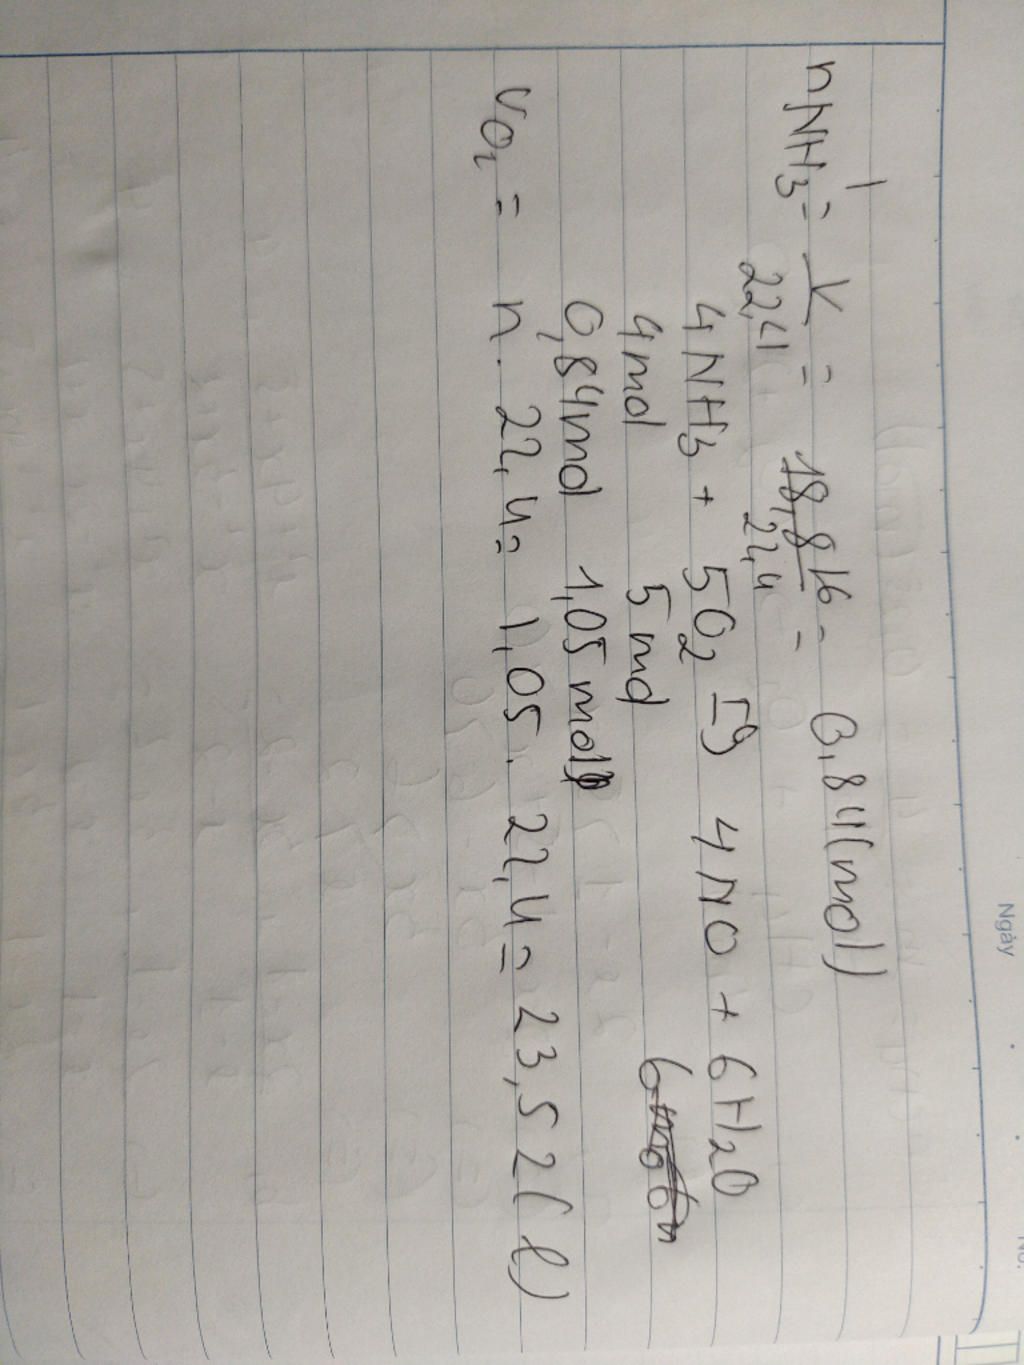 Ngày
No.
nNH3 = V/22,4 = 18,816/22,4 = 0,84 (mol)
4NH3 + 5O2 → 4NO + 6H2O
4mol 5mol
0,84mol 1,05mol
VO2 = n. 22,4 = 1,05. 22,4 = 23,52 (l)